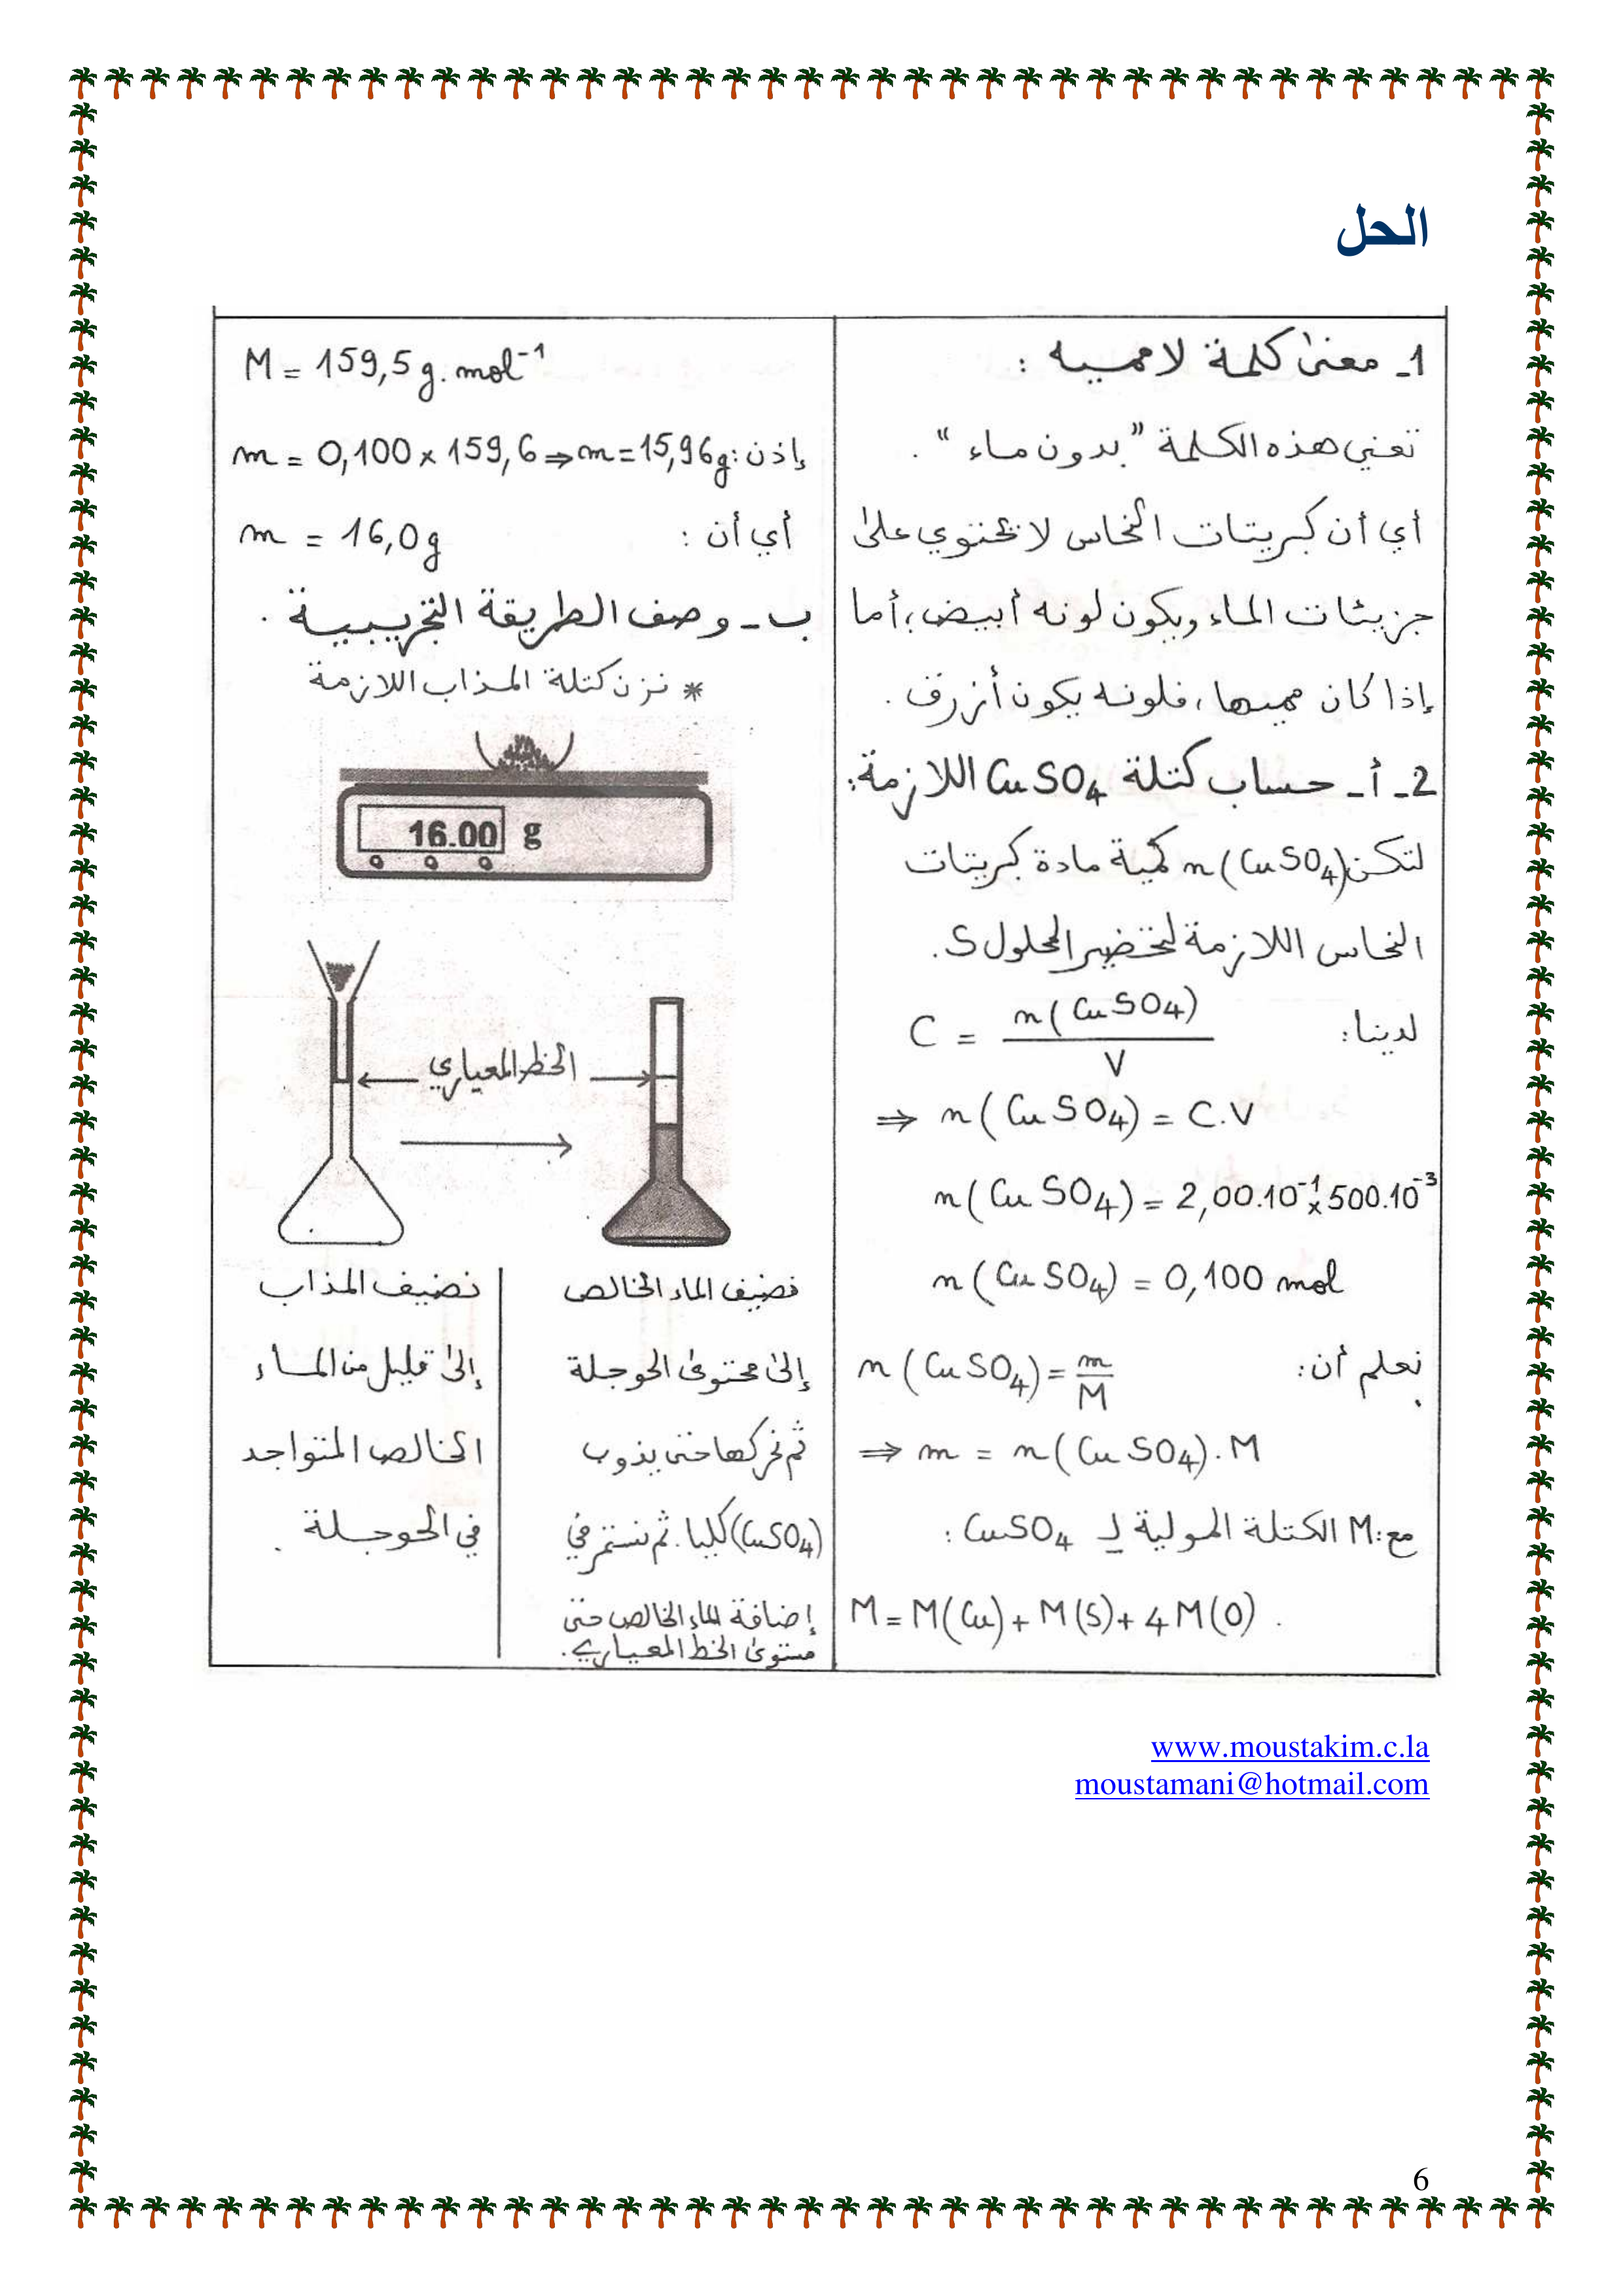 الحل
1- معنى كلمة لا مميه :
تعني هذه الكلمة "بدون ماء".
أي أن كبريتات النحاس لا تحتوي على
جزيئات الماء ويكون لونه أبيض، أما
إذا كان مميها، فلونه يكون أزرق.
2- أ- حساب كتلة CuSO₄ اللازمة:
لتكن n(CuSO₄) كمية مادة كبريتات
النحاس اللازمة لتحضير المحلول S.
لدينا: C = n(CuSO₄) / V
⇒ n(CuSO₄) = C.V
n(CuSO₄) = 2,00.10⁻¹ × 500.10⁻³
n(CuSO₄) = 0,100 mol
نعلم أن: n(CuSO₄) = m/M
⇒ m = n(CuSO₄).M
مع: M الكتلة المولية لـ CuSO₄ :
M = M(Cu) + M(S) + 4M(O) .
M = 159,5 g.mol⁻¹
إذن: m = 0,100 × 159,6 ⇒ m = 15,96g
أي أن : m = 16,0g
ب- وصف الطريقة التجريبية .
* نزن كتلة المذاب اللازمة
16.00 g
الخط المعياري
نضيف المذاب
إلى قليل من الماء
الخالص المتواجد
في الحوجلة .
نضيف الماء الخالص
إلى محتوى الحوجلة
ثم نحركها حتى يذوب
(CuSO₄) كليا. ثم نستمر في
إضافة الماء الخالص حتى
مستوى الخط المعياري.
www.moustakim.c.la
moustamani@hotmail.com
6